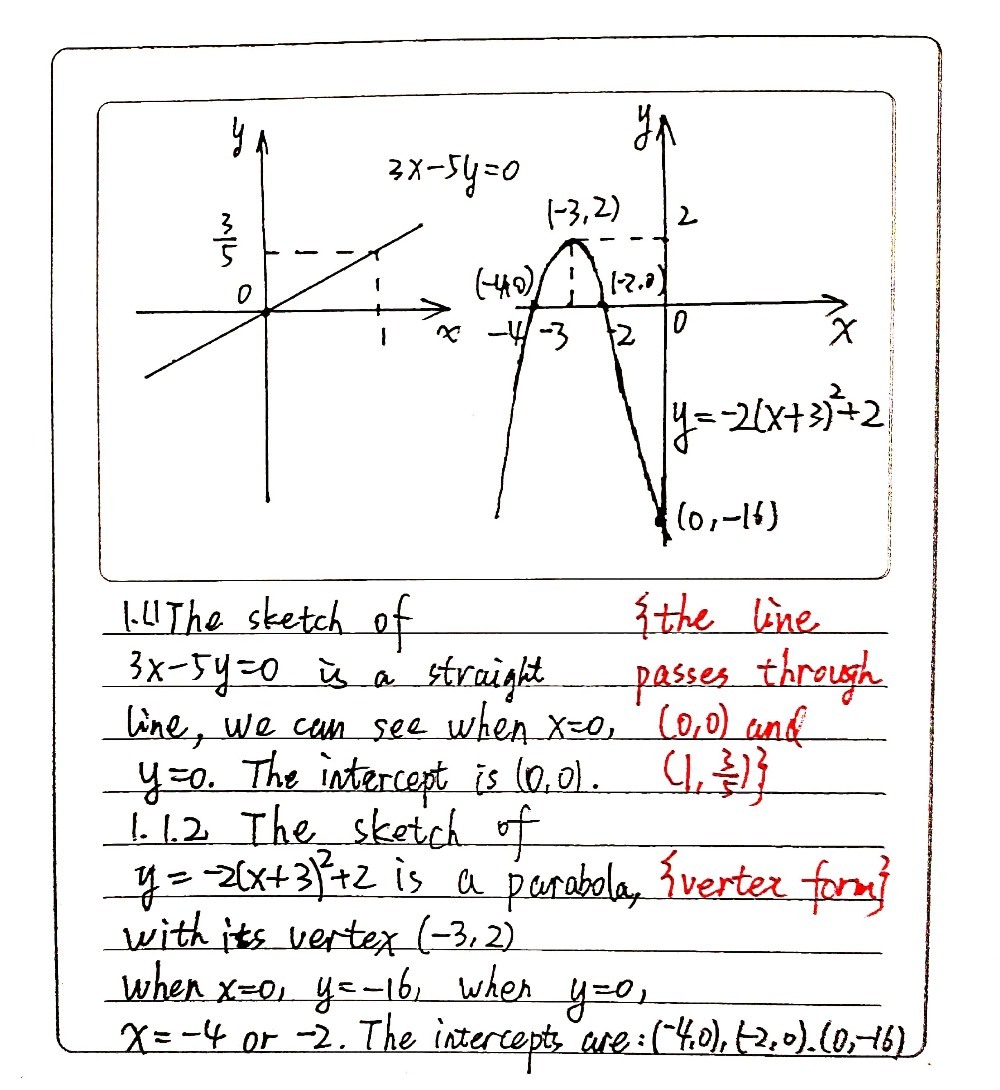 y
3x-5y=0
3/5
0
1
x
y
(-3,2)
2
(-4,0)
(-2,0)
-4
-3
-2
0
x
y=-2(x+3)²+2
(0,-16)
1.1.1 The sketch of {the line
3x-5y=0 is a straight passes through
line, we can see when x=0, (0,0) and
y=0. The intercept is (0,0). (1, 3/5)}
1.1.2 The sketch of
y=-2(x+3)²+2 is a parabola, {vertex form}
with its vertex (-3,2)
when x=0, y=-16, when y=0,
x=-4 or -2. The intercepts are: (-4,0), (-2,0). (0,-16)